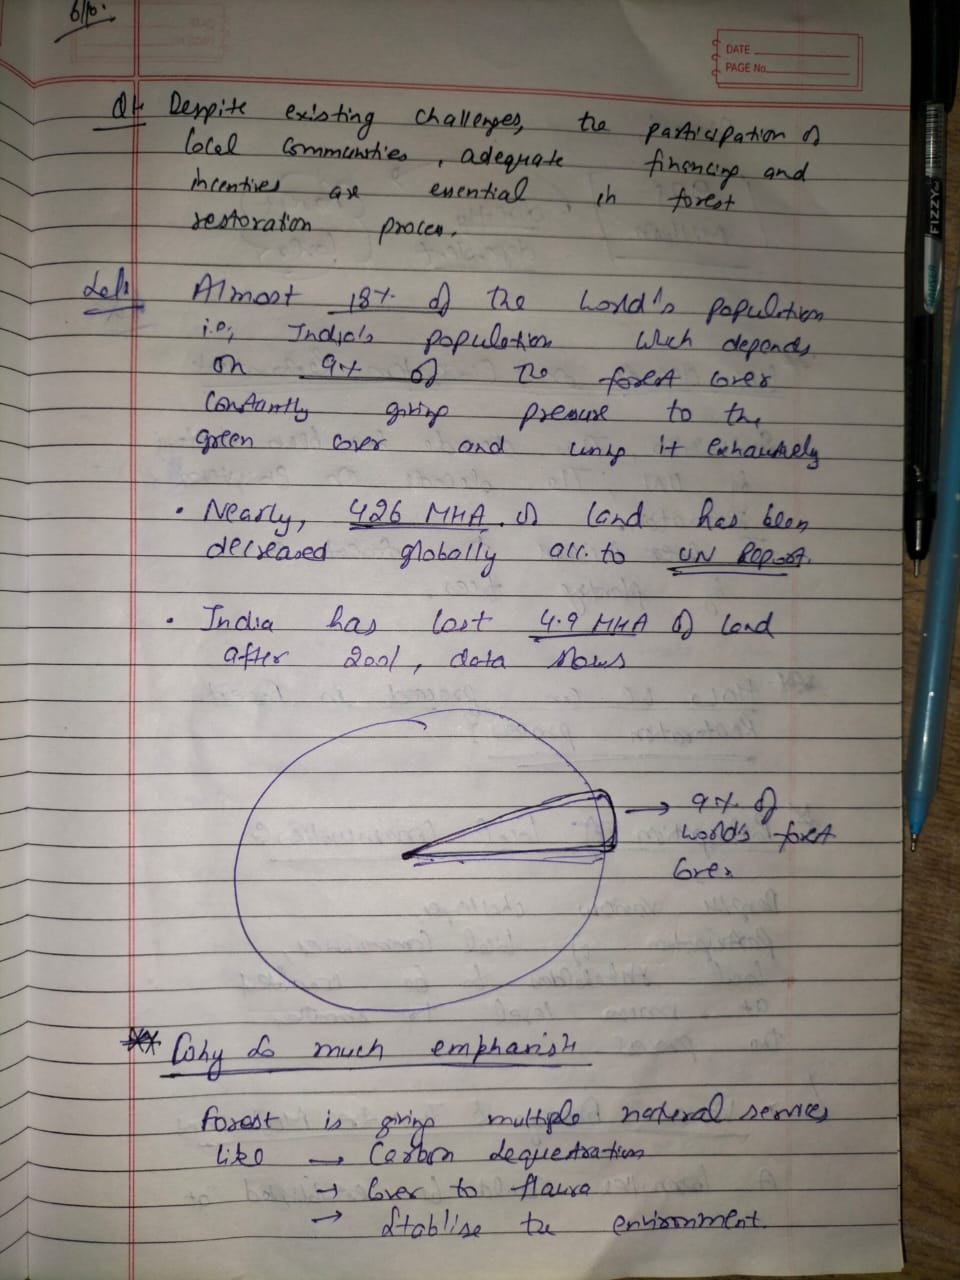 6/10.
DATE
PAGE No.
FIZZY
Q1. Despite existing challenges, the participation of
local communities, adequate financing and
incentives are essential in forest
restoration process.
Sol:
Almost 18% of the world's population
i.e; India's population which depends
on 9% of the forest cover
constantly giving pressure to the
green cover and using it exhaustively
• Nearly, 426 MHA of land has been
decreased globally acc. to UN Report.
• India has lost 4.9 MHA of land
after 2001, data shows
→ 9% of
world's forest
cover
Why so much emphasis
Forest is giving multiple natural services
like → Carbon sequestration
→ Cover to flaura
→ Stablise the environment.